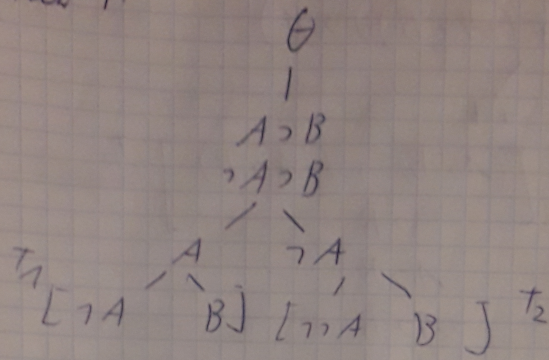 θ
A ⊃ B
¬A ⊃ B
A ¬A
T₁ [ ¬A B ] [ ¬¬A B ] T₂